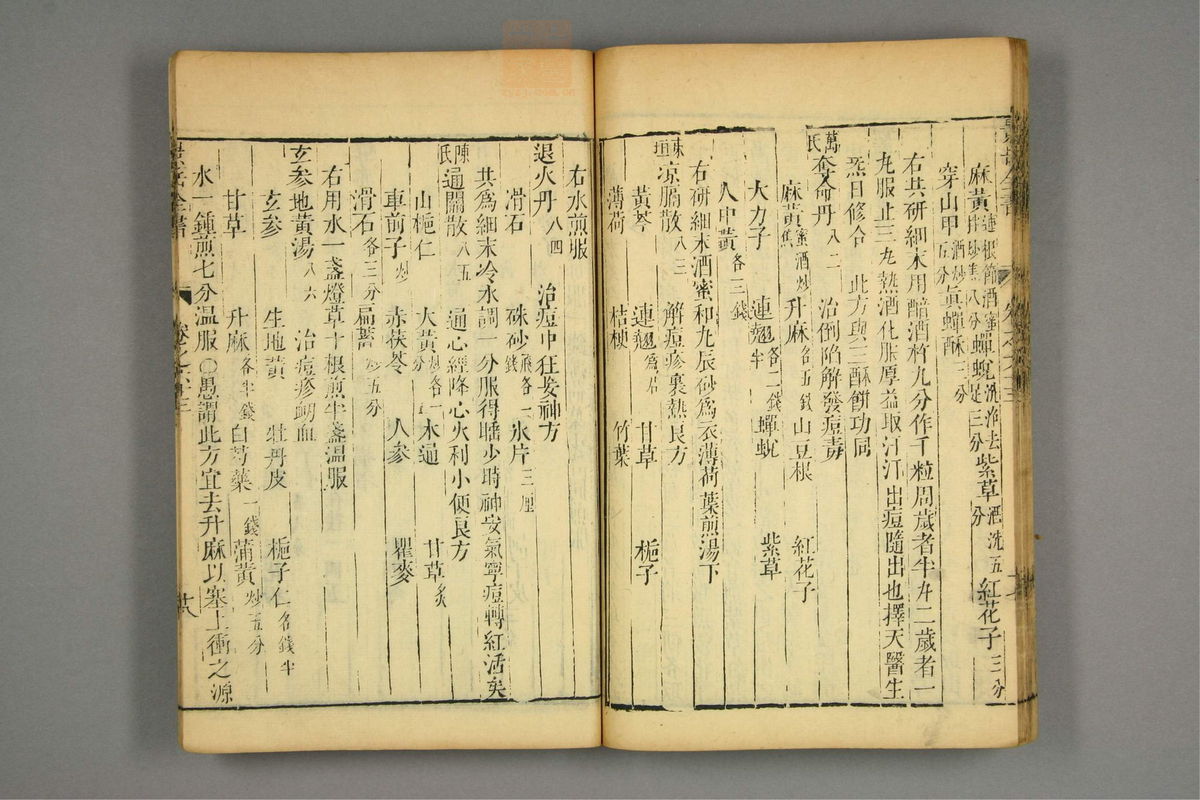 麻黃連根節酒蜜拌炒焦八分蟬蛻洗淨去足三分紫草酒洗五分紅花子三分
穿山甲酒炒五分真蟬酥三分
右共研細末用醋酒杵丸分作千粒周歲者半丸二歲者一
丸服止三丸熱酒化服厚蓋取汗汗出痘隨出也擇天醫生
炁日修合　此方與三酥餅功同
萬氏奪命丹八二　治倒陷解發痘毒
麻黃蜜酒炒焦　升麻各五錢　山豆根　紅花子
大力子　連翹各二錢半　蟬蛻　紫草
人中黃各三錢
右研細末酒蜜和丸辰砂為衣薄荷葉煎湯下
東垣凉膈散八三　解痘疹裏熱良方
黃芩　連翹為君　甘草　梔子
薄荷　桔梗　竹葉
右水煎服
退火丹八四　治痘中狂妄神方
滑石　硃砂飛各一錢　氷片三厘
共爲細末冷水調一分服得睡少時神安氣寧痘轉紅活矣
陳氏通關散八五　通心經降心火利小便良方
山梔仁　大黃炒各一分　木通　甘草炙
車前子炒　赤茯苓　人參　瞿麥
滑石各三分　扁蓄炒五分
右用水一盞燈草十根煎半盞溫服
玄参地黃湯八六　治痘疹衂血
玄参　生地黃　牡丹皮　梔子仁各錢半
甘草　升麻各半錢　白芍藥一錢　蒲黃炒五分
水一鍾煎七分溫服〇愚謂此方宜去升麻以塞上衝之源
卷之六十三
廿八